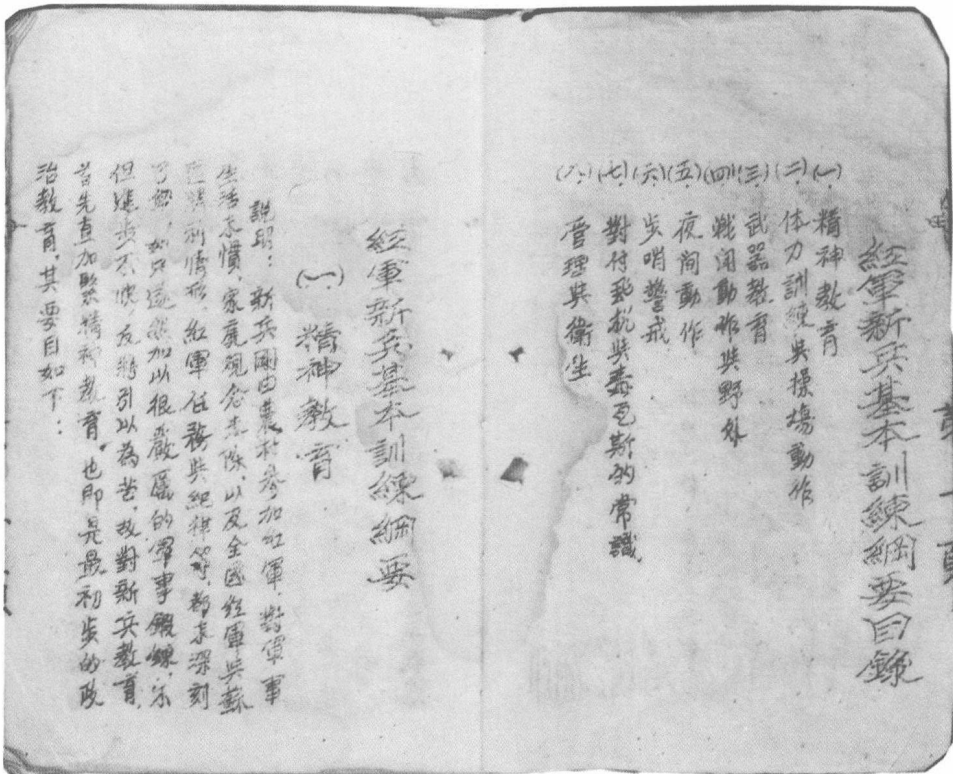 紅軍新兵基本訓練綱要目錄
(一)精神教育
(二)体力訓練與操場動作
(三)武器教育
(四)戦闭動作與野外
(五)夜间動作
(六)步哨警戒
(七)對付飛机與毒瓦斯的常識
(八)管理與衛生
紅軍新兵基本訓練綱要
(一)精神教育
說明：新兵剛由農村參加紅軍，對軍事
生活未慣，家庭观念未除，以及全國紅軍與蘇
區勝利情形，紅軍任務與紀律等都未深刻
了解，如只遽然加以很嚴厲的軍事鍛鍊，不
但進步不快，反將引以為苦，故對新兵教育，
首先宜加緊精神教育，也即是最初步的政
治教育，其要目如下：